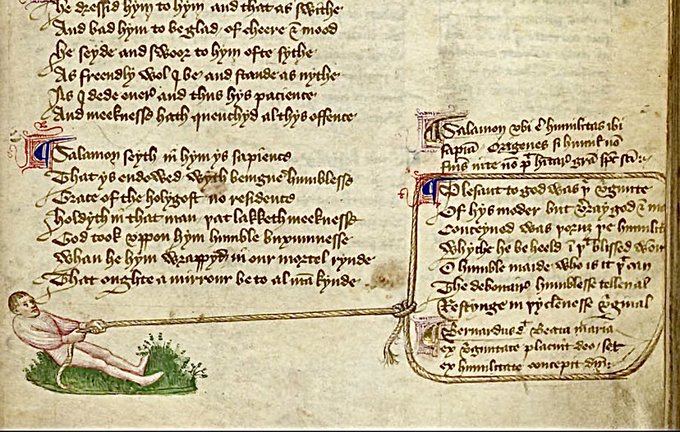 he dressid hym to hym and that as swithe
And bad hym to be glad of cheere & mood
he seyde and swoor to hym ofte sythe
As freendly wol I be and stande as nythe
As I dede over and thus hys pacience
And meeknesse hath quenchyd al thys offence
Salamon seyth in hym ys sapience
That ys endowed wyth benigne humblesse
Grace of the holygost no residence
holdyth in that man þat lakketh meeknesse
God took vppon hym humble buxumnesse
Whan he hym wrappyd in oure mortel rynde
That oughte a mirrour be to al mākynde
Salamon vbi ē humilitas ibi
sapiā Origenes si humil nō
Plesant to god was þe
Of hys moder but god &
Conceyved was þe humilit
Whyche he beheeld blissed
O humble maide who is it þt can
The debonair humblesse telle al
Restynge in ryclenesse
Bernardus Beata maria
ex placuit deo set
ex humilitate concepit